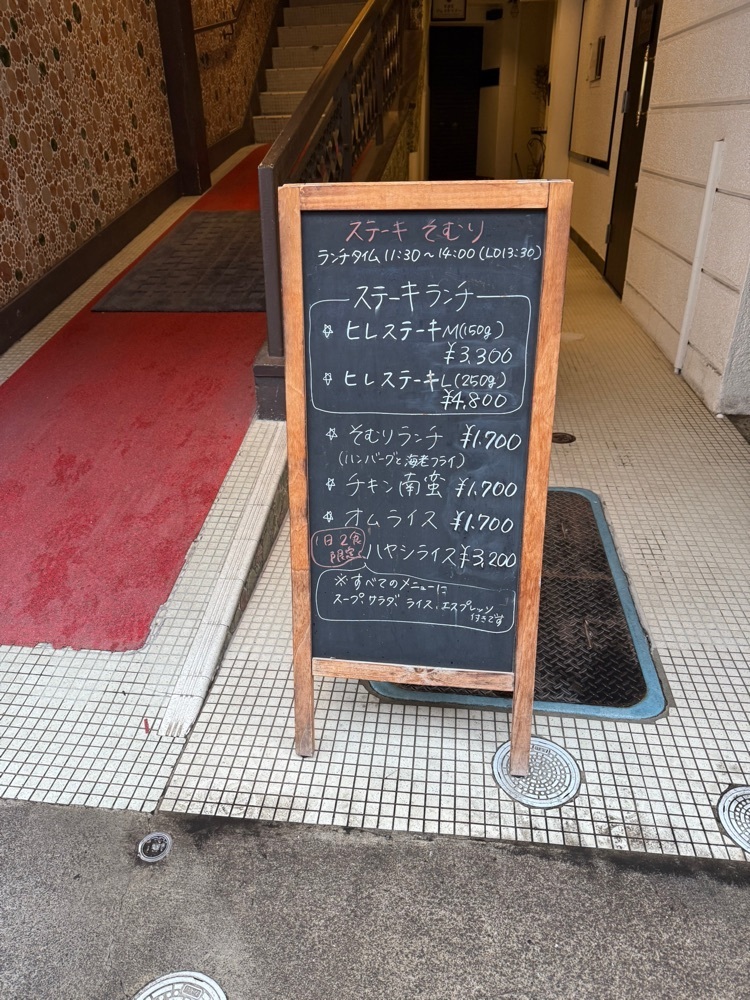 ステーキ そむり
ランチタイム 11:30～14:00 (LO13:30)
ステーキランチ
☆ ヒレステーキM(150g)
¥3,300
☆ ヒレステーキL(250g)
¥4,800
☆ そむりランチ ¥1,700
(ハンバーグと海老フライ)
☆ チキン南蛮 ¥1,700
☆ オムライス ¥1,700
1日2食
限定 ハヤシライス ¥3,200
※すべてのメニューに
スープ、サラダ、ライス、エスプレッソ
付きです